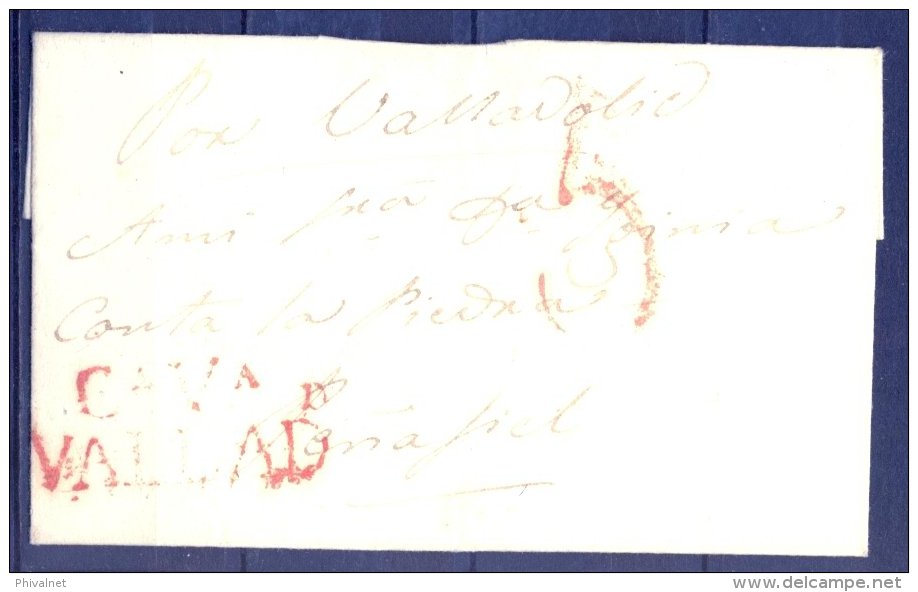 Por Valladolid
Ami Sra Da
Conta la Piedra
Peñafiel
CAVA
VALLAD
Phivalnet
www.delcampe.net